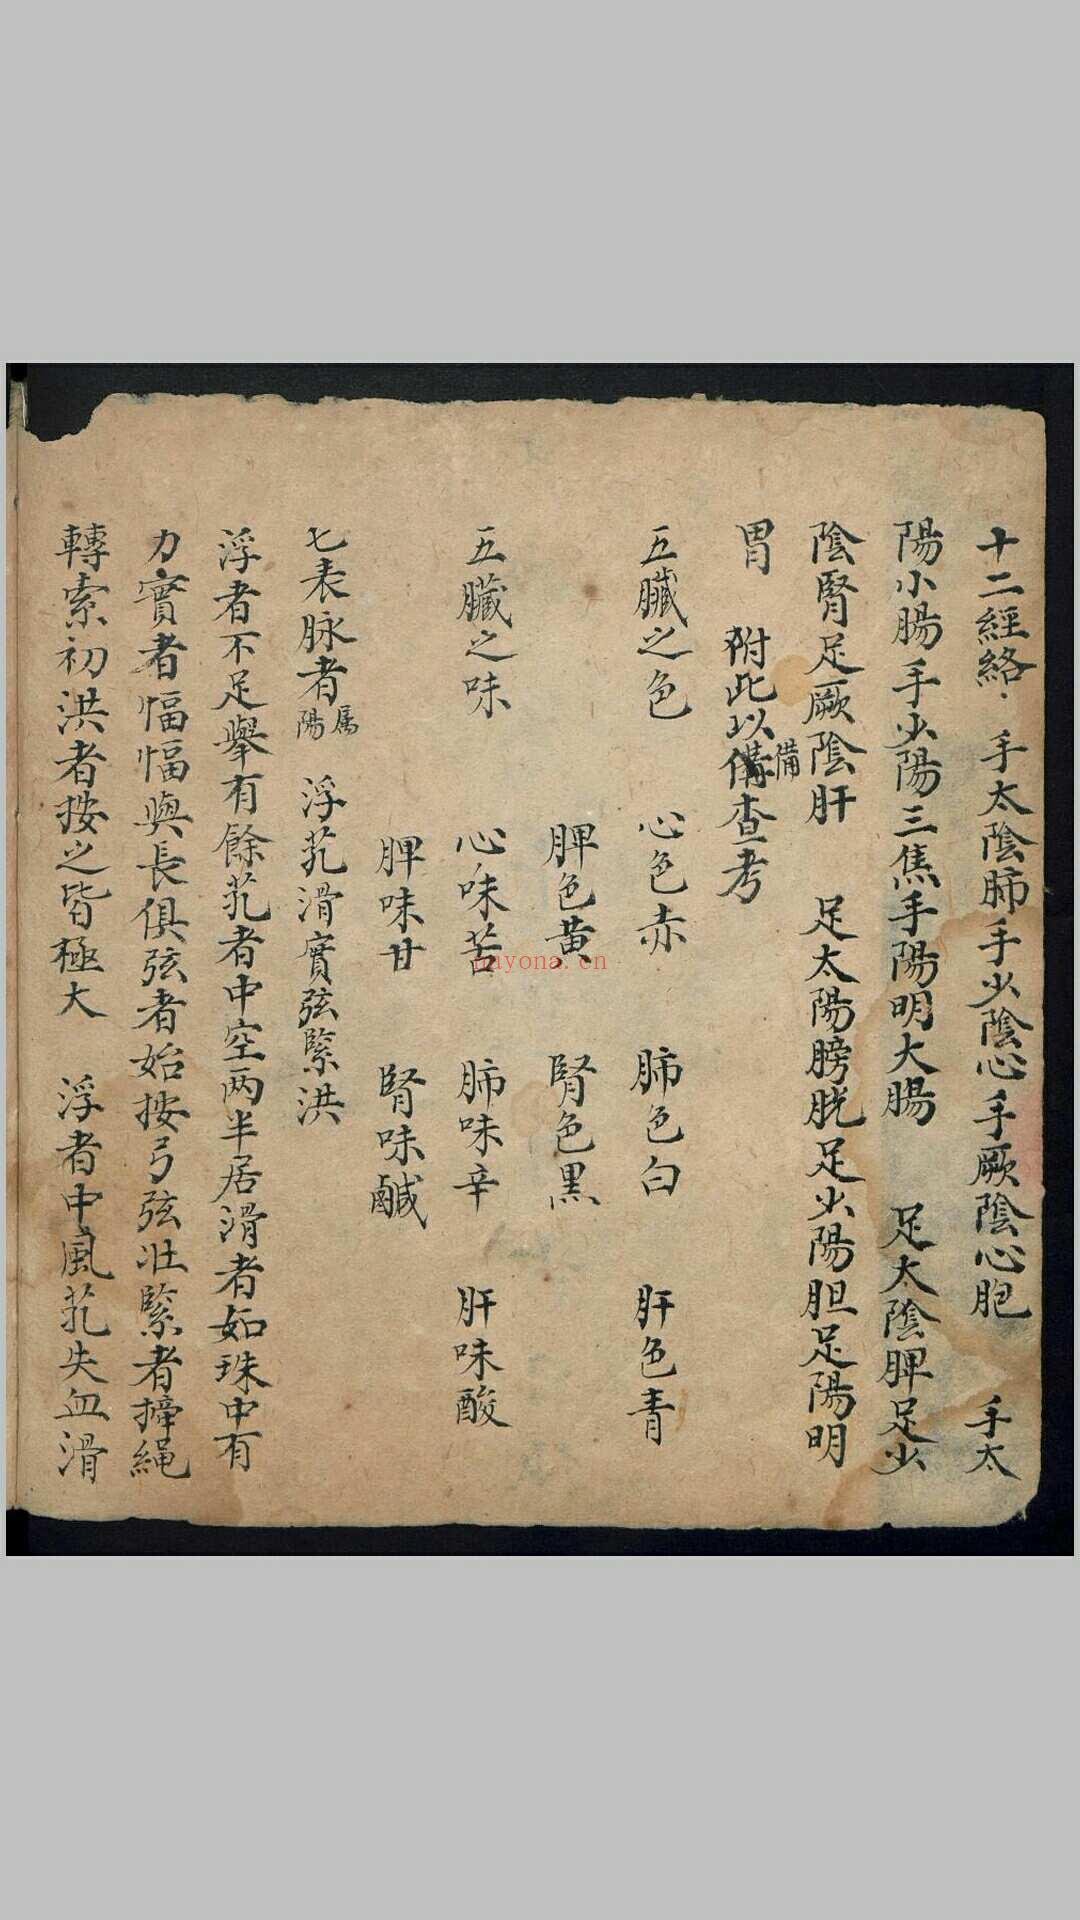 十二經絡 手太陰肺手少陰心手厥陰心胞 手太
陽小腸手少陽三焦手陽明大腸 足太陰脾足少
陰腎足厥陰肝 足太陽膀胱足少陽胆足陽明
胃 附此以備查考
備
五臟之色 心色赤 肺色白 肝色青
脾色黃 腎色黑
五臟之味 心味苦 肺味辛 肝味酸
脾味甘 腎味鹹
七表脉者屬陽 浮芤滑實弦緊洪
浮者不足舉有餘芤者中空两半居滑者如珠中有
力實者愊愊與長俱弦者始按弓弦壯緊者擰繩
轉索初洪者按之皆極大 浮者中風芤失血滑
nayona.cn